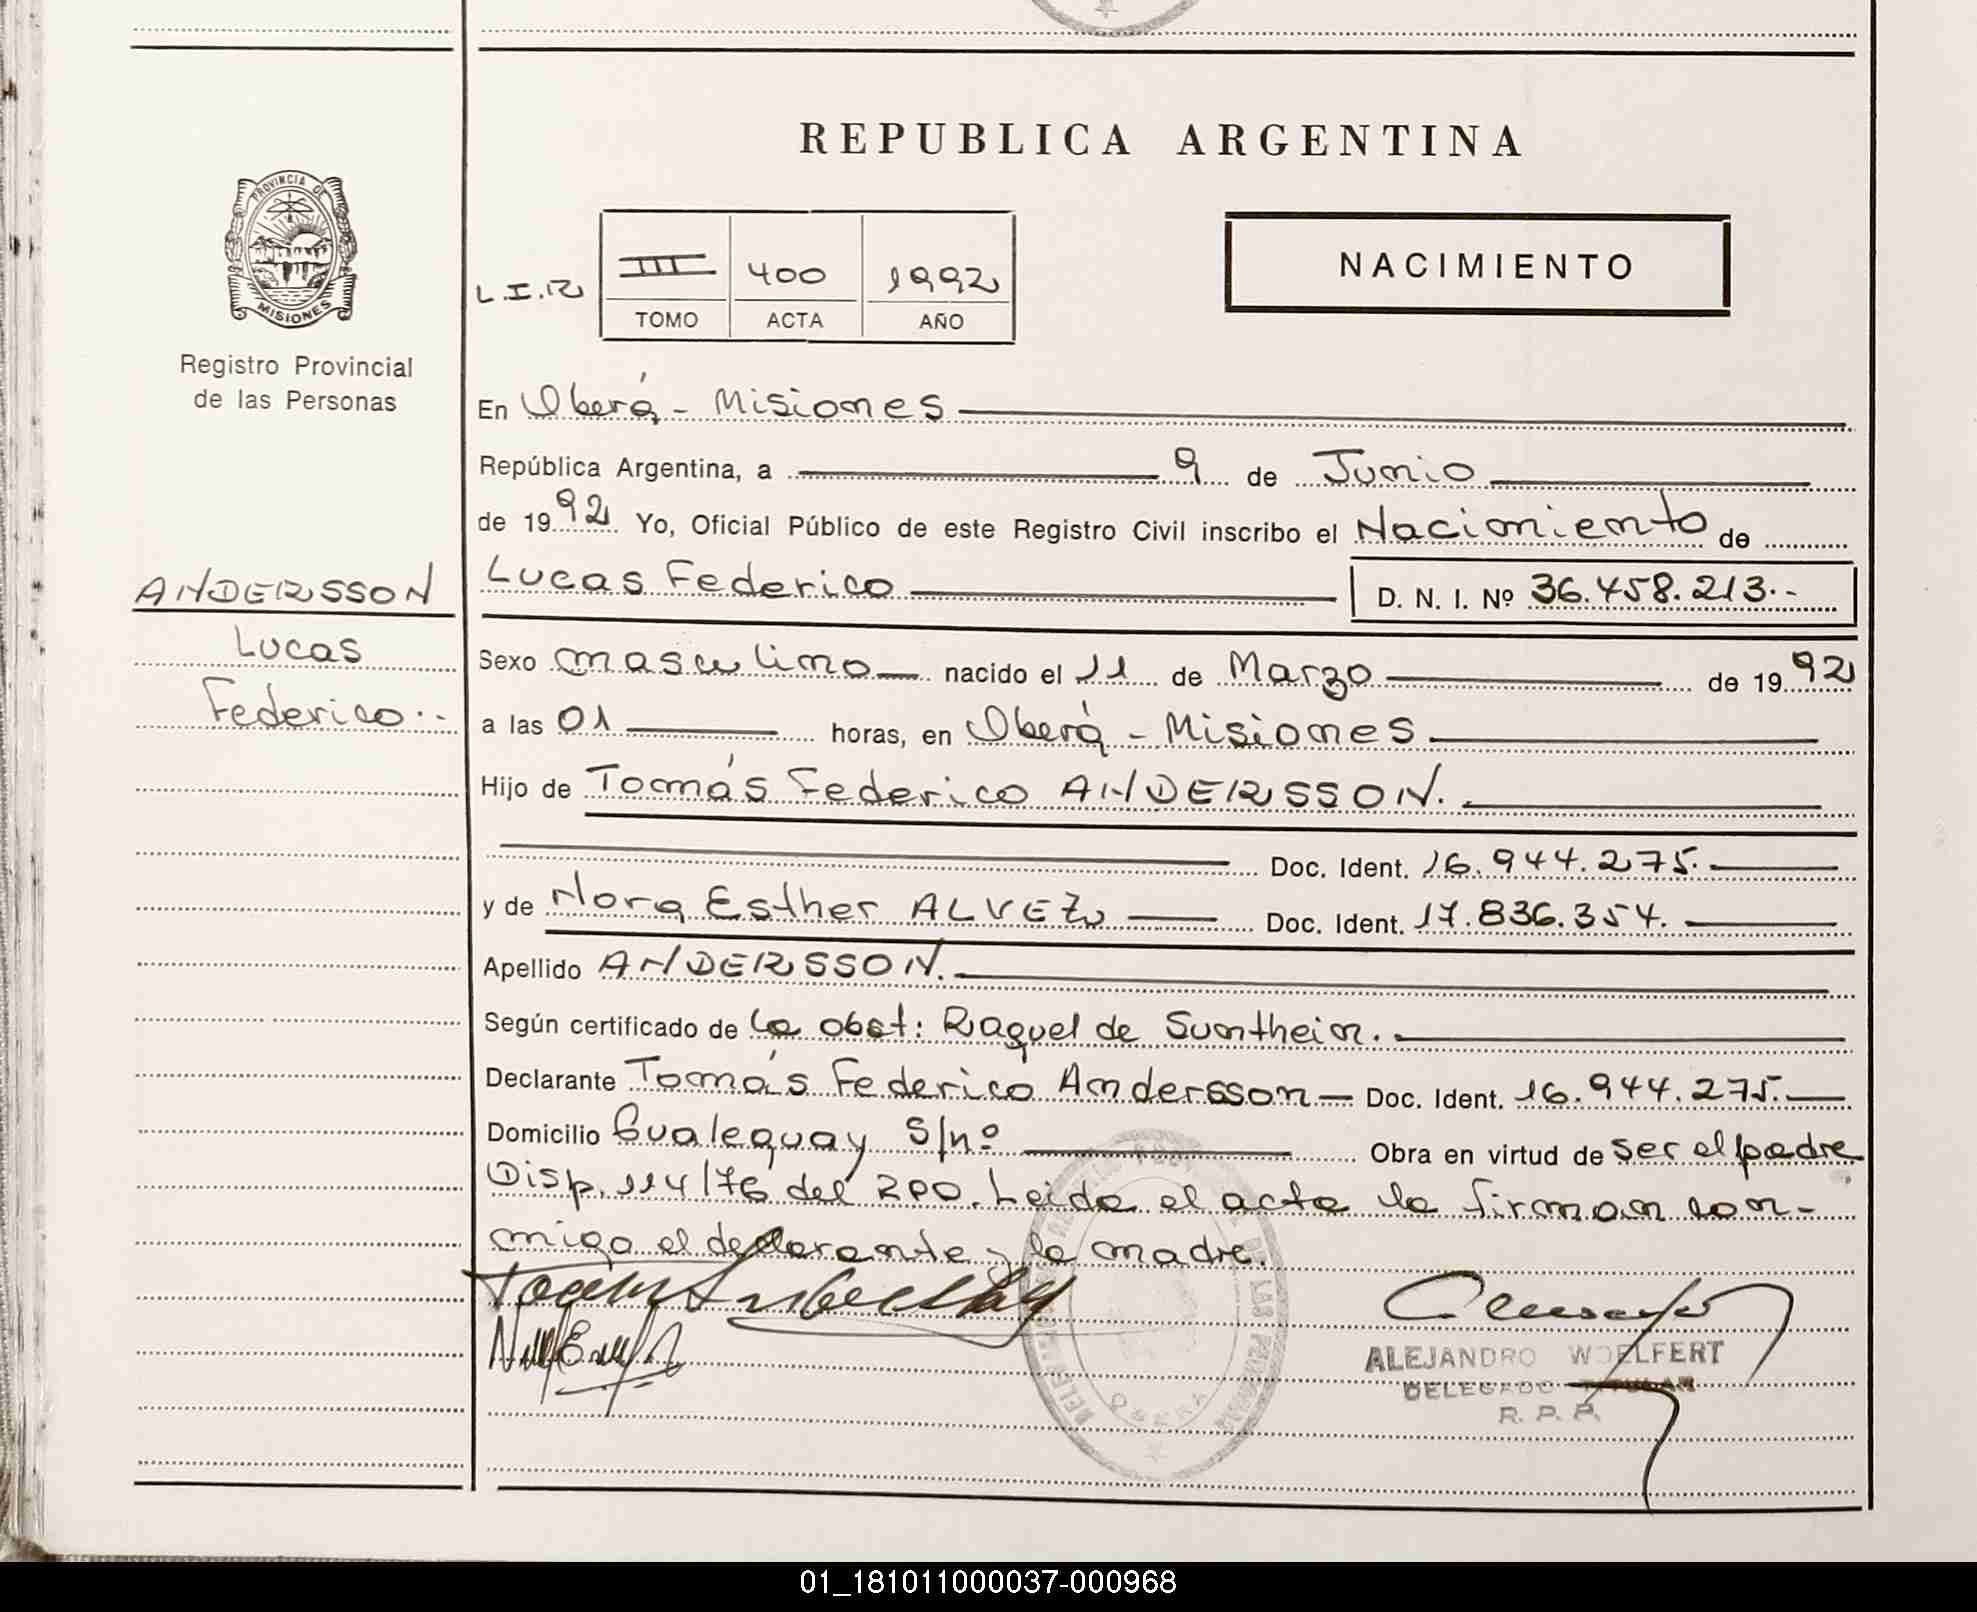 REPUBLICA ARGENTINA
PROVINCIA DE
MISIONES
Registro Provincial
de las Personas
L.I.R
III 400 1992
TOMO ACTA AÑO
NACIMIENTO
En Oberá - Misiones
República Argentina, a 9 de Junio
de 1992 Yo, Oficial Público de este Registro Civil inscribo el Nacimiento de
Lucas Federico D. N. I. Nº 36.458.213.-
ANDERSSON
Lucas
Federico.-
Sexo masculino nacido el 11 de Marzo de 1992
a las 01 horas, en Oberá - Misiones
Hijo de Tomás Federico ANDERSSON.
Doc. Ident. 16.944.275.
y de Nora Esther ALVEZ Doc. Ident. 17.836.354.
Apellido ANDERSSON.
Según certificado de la obst: Raquel de Sunthein.
Declarante Tomás Federico Andersson Doc. Ident. 16.944.275.
Domicilio Gualeguay S/nº Obra en virtud de ser el padre
Disp. 114/76 del RPP. Leida el acta la firman con-
migo el declarante y la madre.
ALEJANDRO WOELFERT
DELEGADO TITULAR
R. P. P.
OBERA
01_181011000037-000968